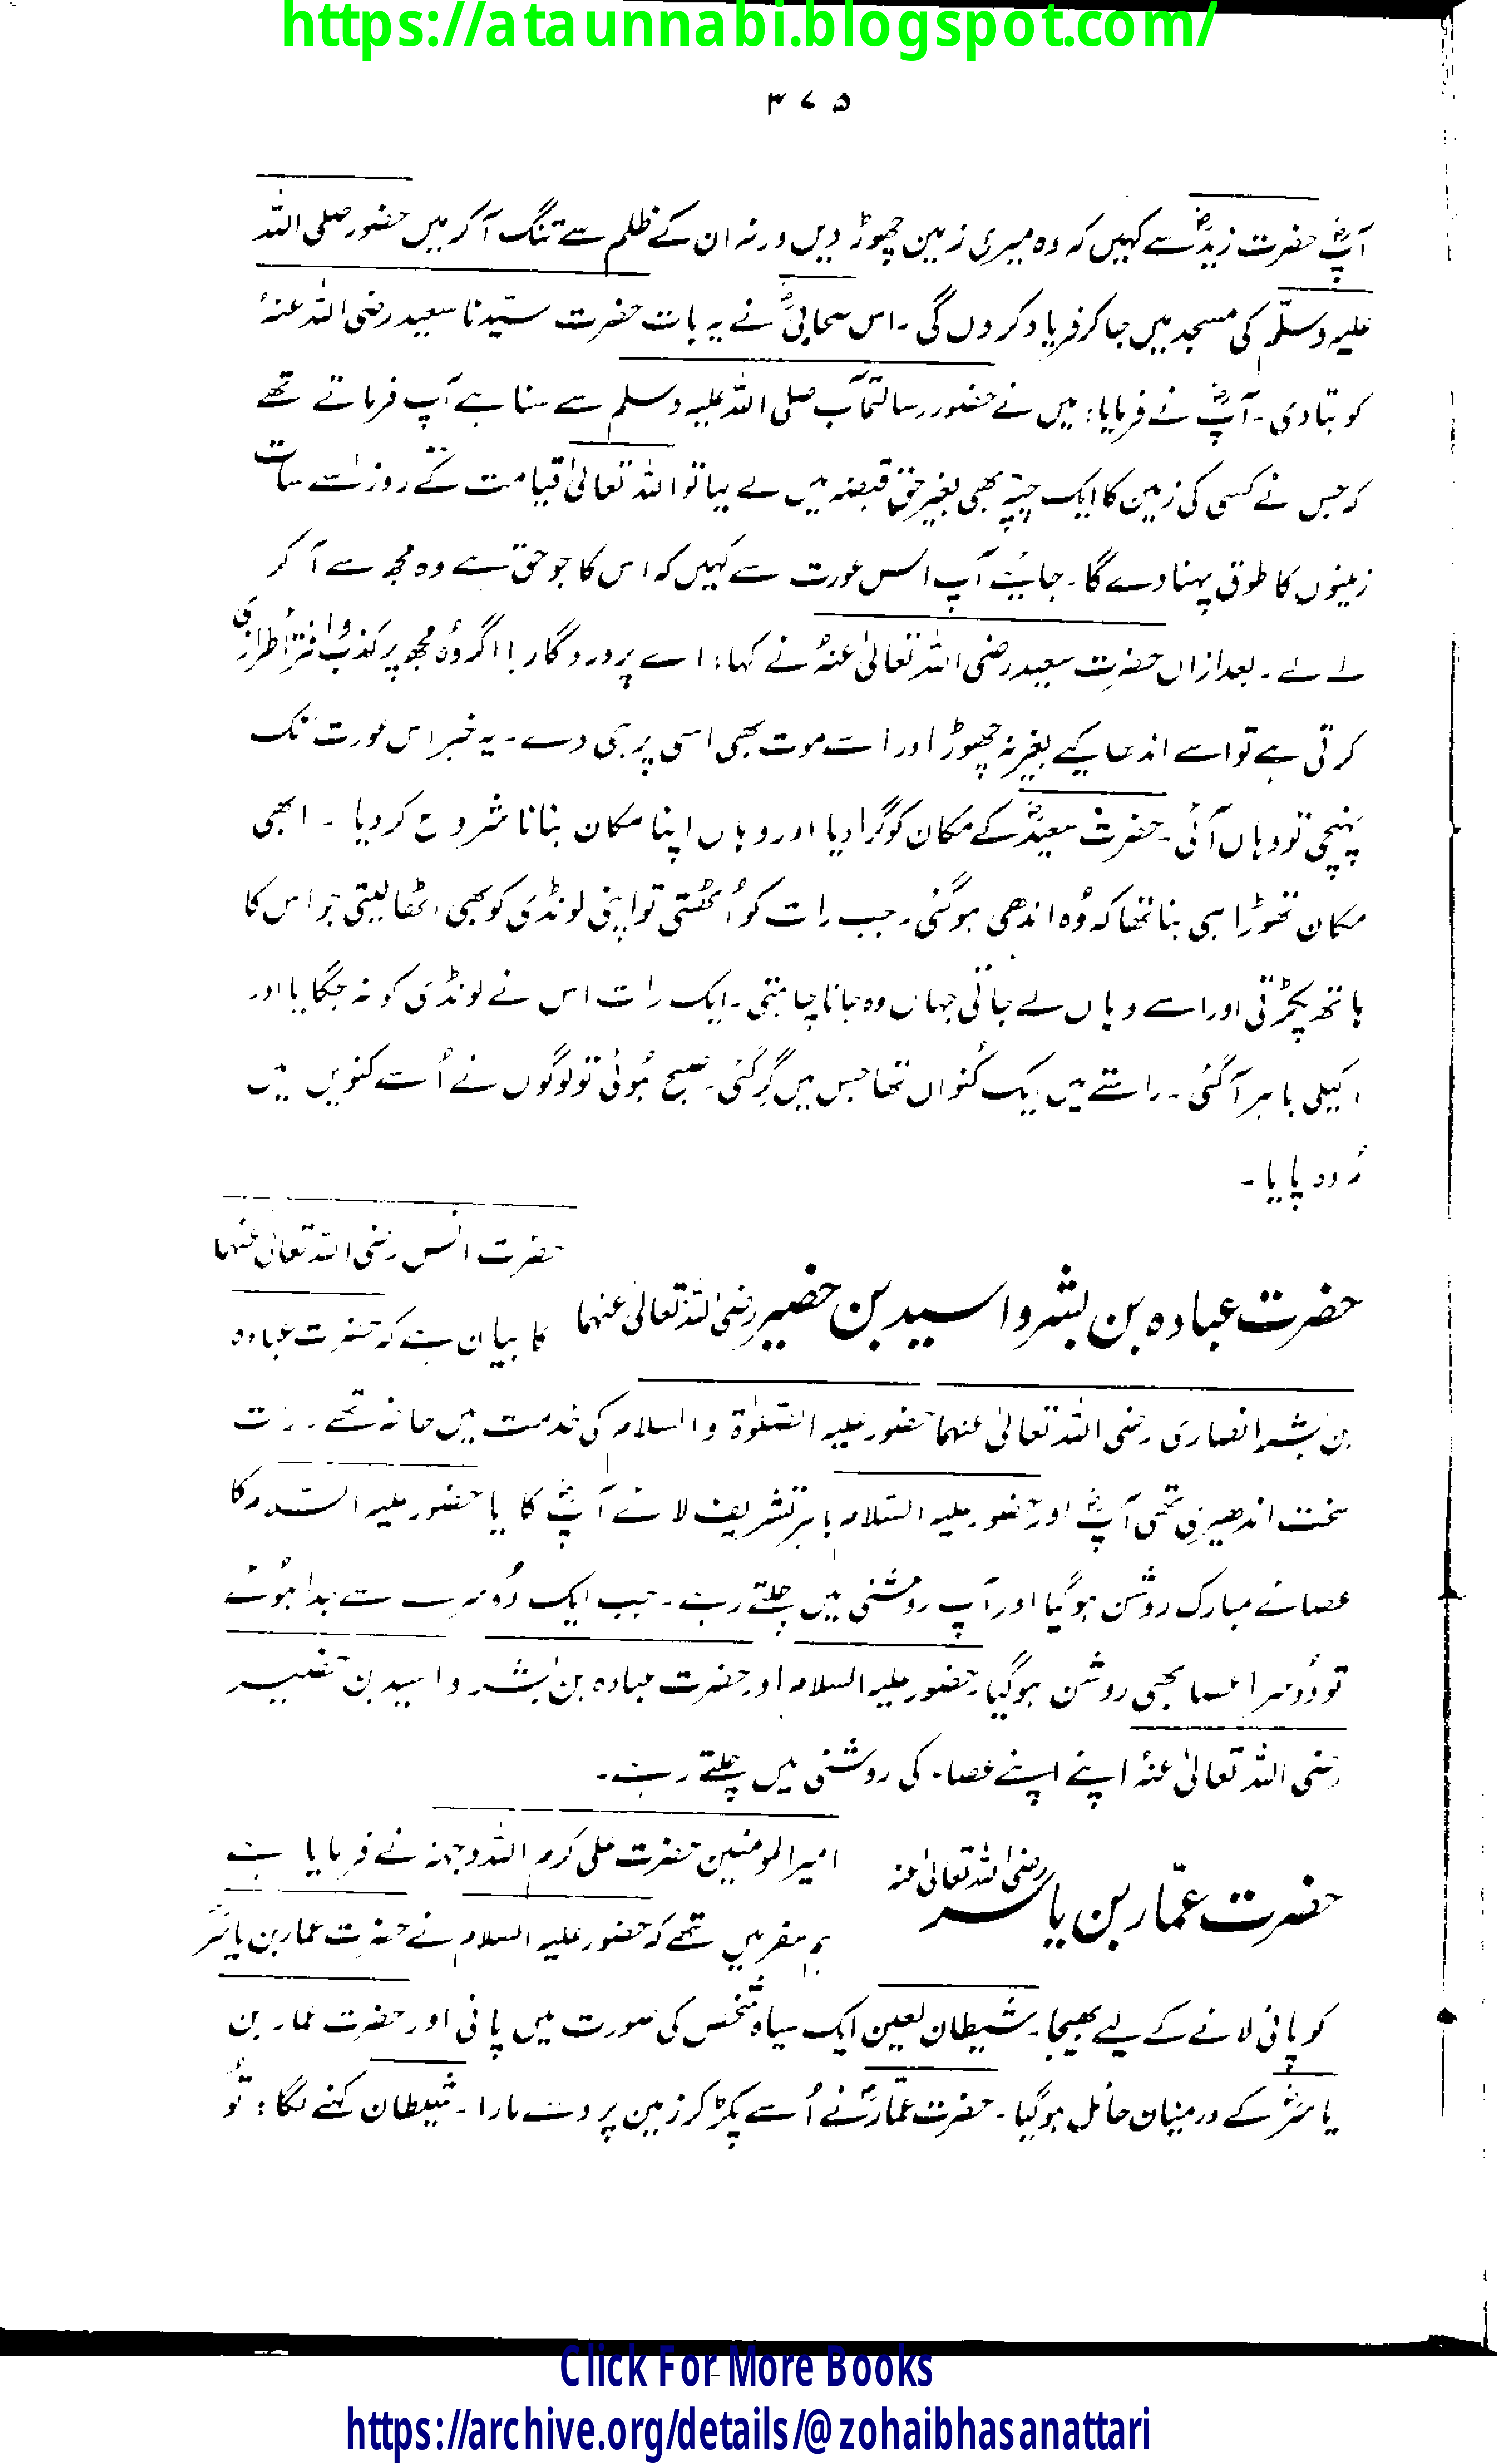 https://ataunnabi.blogspot.com/
۳۷۵
آپؓ حضرت زیدؓ سے کہیں کہ وہ میری زمین چھوڑ دیں ورنہ ان کے ظلم سے تنگ آ کر میں حضور صلی اللہ
علیہ وسلّم کی مسجد میں جا کر فریاد کر دوں گی ۔ اس صحابیؓ نے یہ بات حضرت سیّدنا سعید رضی اللہ عنہٗ
کو بتا دی ۔ آپؓ نے فرمایا: میں نے حضور رسالتمآب صلی اللہ علیہ وسلم سے سنا ہے آپ فرماتے تھے
کہ جس نے کسی کی زمین کا ایک چپّہ بھی بغیر حق قبضہ میں لے لیا تو اللہ تعالیٰ قیامت کے روز اسے سات
زمینوں کا طوق پہنا دے گا ۔ جایئے آپ اس عورت سے کہیں کہ اس کا جو حق ہے وہ مجھ سے آ کر
لے لے ۔ بعد ازاں حضرت سعید رضی اللہ تعالیٰ عنہٗ نے کہا: اے پروردگار! اگر وُہ مجھ پر کذب و افترا طرازی
کرتی ہے تو اسے اندھا کیے بغیر نہ چھوڑ اور اسے موت بھی اسی پر ہی دے ۔ یہ خبر اس عورت تک
پہنچی تو وہاں آئی ۔ حضرت سعیدؓ کے مکان کو گرا دیا اور وہاں اپنا مکان بنانا شروع کر دیا ۔ ابھی
مکان تھوڑا ہی بنا تھا کہ وُہ اندھی ہو گئی ۔ جب رات کو اُٹھتی تو اپنی لونڈی کو بھی اٹھا لیتی جو اس کا
ہاتھ پکڑتی اور اسے وہاں لے جاتی جہاں وہ جانا چاہتی ۔ ایک رات اس نے لونڈی کو نہ جگایا اور
اکیلی باہر آ گئی ۔ راستے میں ایک کُنواں تھا جس میں گر گئی ۔ صبح ہُوئی تو لوگوں نے اُسے کنویں میں
مُردہ پایا ۔
حضرت عبادہ بن بشر و اسید بن حضیر رضی اللہ تعالیٰ عنہما
حضرت انس رضی اللہ تعالیٰ عنہما
کا بیان ہے کہ حضرت عبادہ
بن بشر انصاری رضی اللہ تعالیٰ عنہما حضور علیہ الصّلوٰۃ والسلام کی خدمت میں حاضر تھے ۔ رات
سخت اندھیری تھی آپؓ اور حضور علیہ السّلام باہر تشریف لائے آپؓ کا یا حضور علیہ السّلام کا
عصائے مبارک روشن ہو گیا اور آپ روشنی میں چلتے رہے ۔ جب ایک دُوسرے سے جدا ہُوئے
تو دُوسرا عصا بھی روشن ہو گیا ۔ حضور علیہ السلام اور حضرت عبادہ بن بشر و اسید بن حضیر
رضی اللہ تعالیٰ عنہٗ اپنے اپنے عصاء کی روشنی میں چلتے رہے ۔
حضرت عمّار بن یاسر رضی اللہ تعالیٰ عنہ
امیر المومنین حضرت علی کرم اللہ وجہہٗ نے فرمایا ہے
ہم سفر میں تھے کہ حضور علیہ السلام نے حضرت عمار بن یاسرؓ
کو پانی لانے کے لیے بھیجا ۔ شیطان لعین ایک سیاہ شخص کی صورت میں پانی اور حضرت عمار بن
یاسرؓ کے درمیان حائل ہو گیا ۔ حضرت عمّارؓ نے اُسے پکڑ کر زمین پر دے مارا ۔ شیطان کہنے لگا : تُو
Click For More Books
https://archive.org/details/@zohaibhasanattari